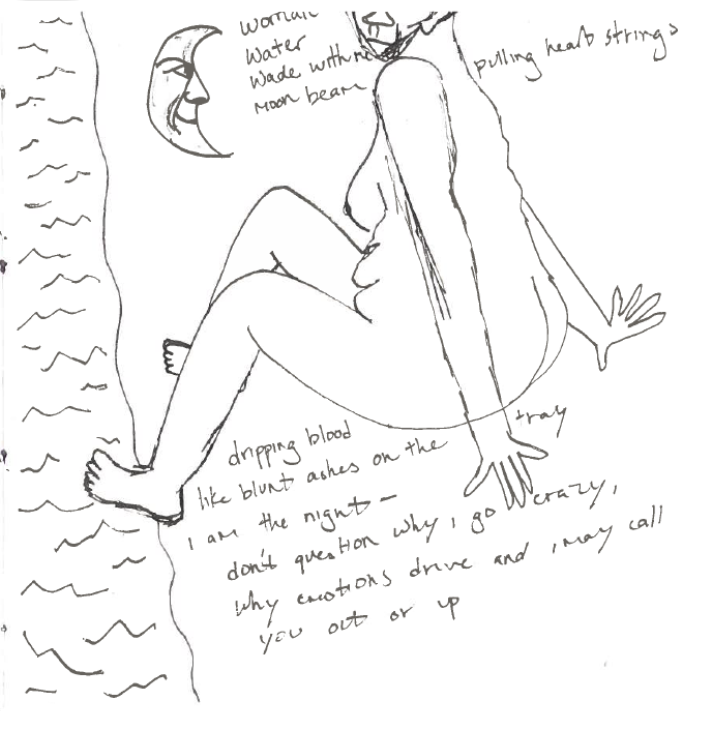 woman
water
wade with me
moon beam
pulling heart strings
dripping blood
like blunt ashes on the tray
i am the night –
don't question why i go crazy,
why emotions drive and i may call
you out or up